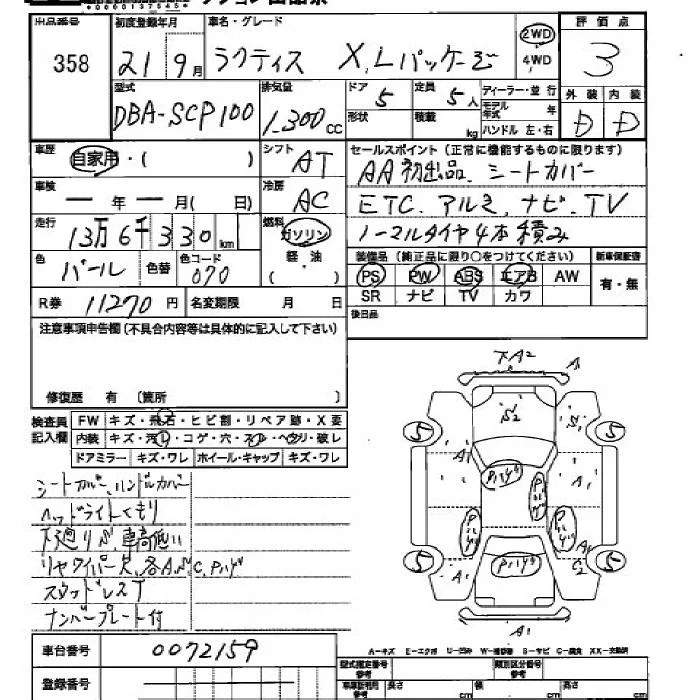 出品番号 初度登録年月 車名・グレード 2WD 評価点
358 21 9月 ラクティス X,Lパッケージ 4WD 3
型式 排気量 ドア 5 定員 5人 ディーラー・並行 外装 内装
DBA-SCP100 1,300cc 形状 積載 kg モデル年式 年 D D
ハンドル 左・右
車歴 自家用・( ) シフト AT セールスポイント(正常に機能するものに限ります)
AA初出品、シートカバー
車検 ー年ー月( 日) 冷房 AC ETC、アルミ、ナビ、TV
走行 13万6千330km 燃料 ガソリン 軽油 ( ) ノーマルタイヤ4本積み
色 パール 色替 色コード 070 装備品(純正品に限り○をつけてください) 新車保証書
PS PW ABS エアB AW 有・無
R券 11270円 名変期限 月 日 SR ナビ TV カワ
注意事項申告欄(不具合内容等は具体的に記入して下さい) 後日品
修復歴 有 〔箇所 〕
検査員記入欄 FW キズ・飛石・ヒビ割・リペア跡・X要
内装 キズ・汚レ・コゲ・穴・スレ・ヘタリ・破レ
ドアミラー キズ・ワレ ホイール・キャップ キズ・ワレ
シートカバー、ハンドルカバー
ヘッドライトくもり
下廻りS、車高低い
リヤワイパー欠、各A,S,C,Pハゲ
スタッドレスT
ナンバープレート付
下A2 A
S2
5 A1 A1 5
Pハゲ Pハゲ
Pハゲ Pハゲ
5 A1 Pハゲ A1 C2 5
A1
A-キズ E-エクボ U-凹み W-補修跡 S-サビ C-腐食 XX-交換済
車台番号 0072159
登録番号
型式指定番号 類別区分番号
参考 参考
長さ cm 幅 cm 高さ cm